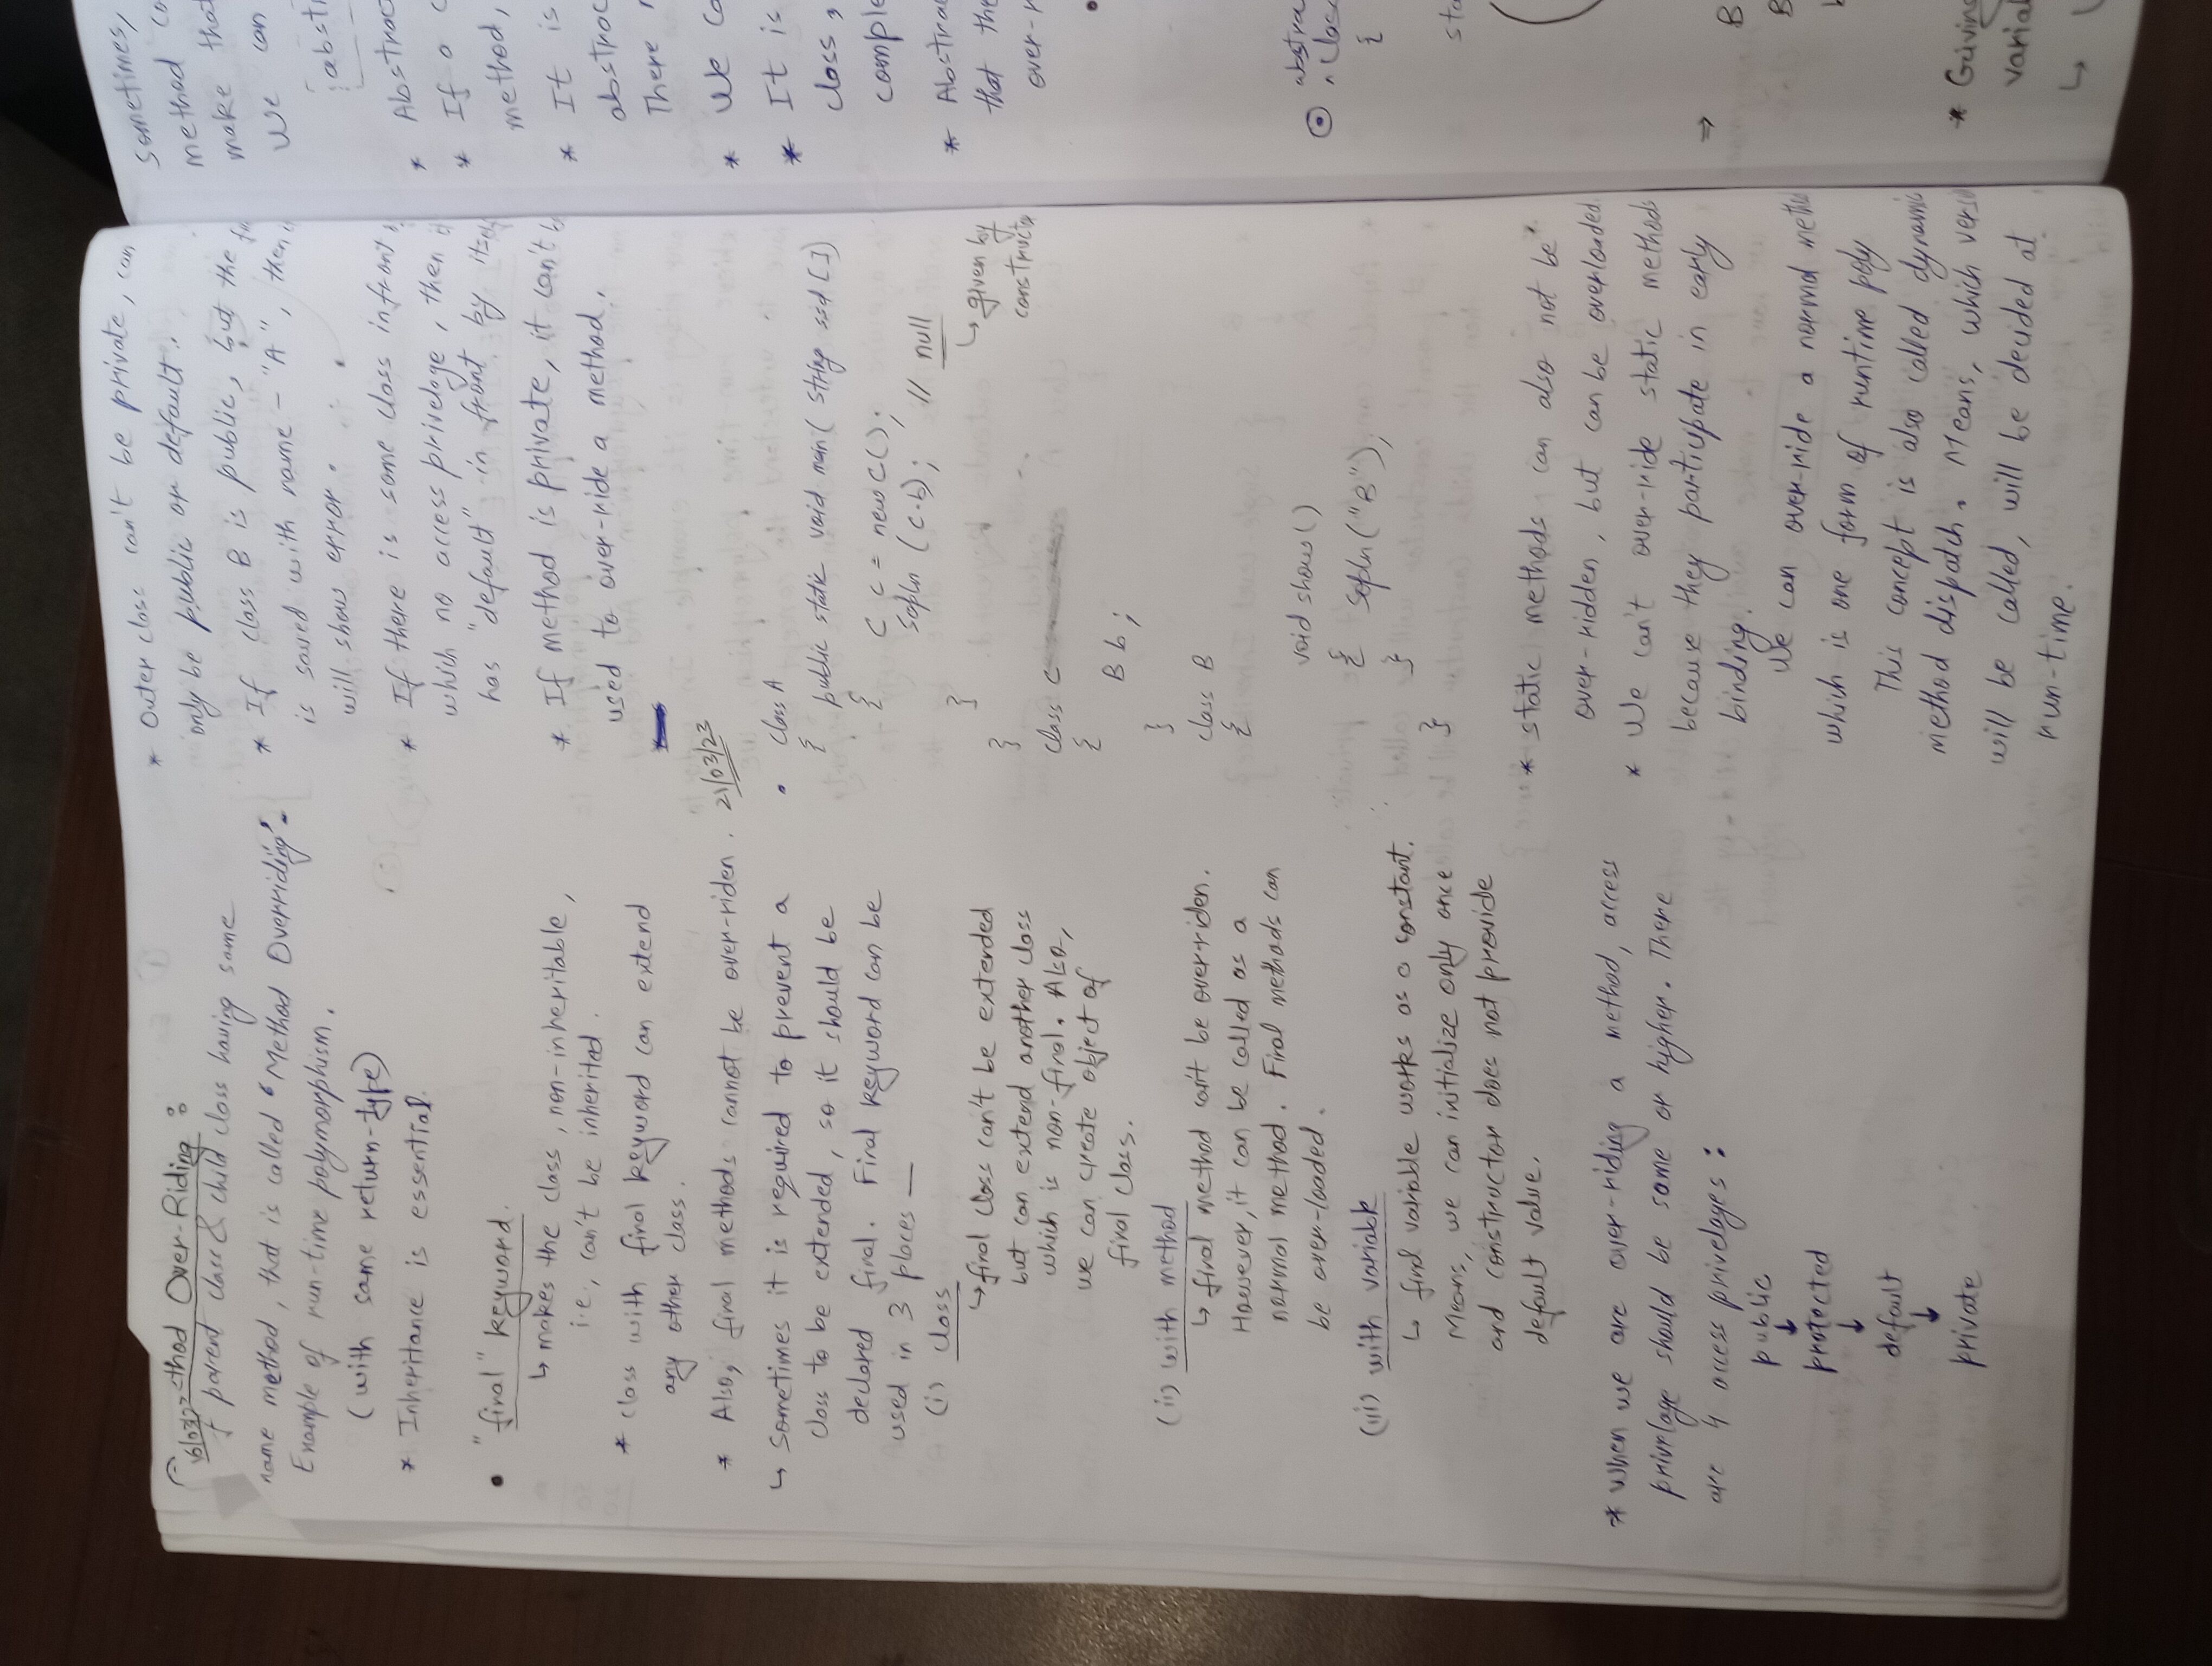 16/03/23
ethod Over-Riding :
f parent class & child class having same
name method, that is called "Method Overriding".
Example of run-time polymorphism.
(with same return-type)
* Inheritance is essential.
• "final" keyword.
↳ makes the class, non-inheritable,
i.e., can't be inherited.
* class with final keyword can extend
any other class.
* Also, final methods cannot be over-riden.
↳ Sometimes it is required to prevent a
class to be extended, so it should be
declared final. Final keyword can be
used in 3 places —
(i) class
↳ final class can't be extended
but can extend another class
which is non-final. Also,
we can create object of
final class.
(ii) with method
↳ final method can't be over-riden.
However, it can be called as a
normal method. Final methods can
be over-loaded.
(iii) with variable
↳ final variable works as a constant.
Means, we can initialize only once
and constructor does not provide
default value.
* when we are over-riding a method, access
privelage should be same or higher. There
are 4 access privelages :
public
↓
protected
↓
default
↓
private
* Outer class can't be private, can
only be public or default.
* If class B is public, but the
is saved with name - "A", then
will show error.
* If there is some class infront
which no access privelage, then
has "default" in front by itself
* If method is private, it can't b
used to over-ride a method.
21/03/23
• class A
{
public static void main( String ssd [])
{
C c = new C();
Sopln (c.b); // null
↳ given by
constructor
}
}
class C
{
B b;
}
class B
{
void show()
{ Sopln("B");
}
}
* static methods can also not be
over-ridden, but can be overloaded.
* We can't over-ride static methods
because they participate in early
binding.
We can over-ride a normal metho
which is one form of runtime poly
This concept is also called dynamic
method dispatch. Means, which vers
will be called, will be decided at
run-time.
Sometimes,
method co
make that
We can
abst
* Abstrac
* If a c
method,
* It is
abstrac
There
* We ca
* It is
class,
comple
* Abstra
that the
over-r
abstra
class
{
sta
⇒
B
B
* Giving
variab
↳